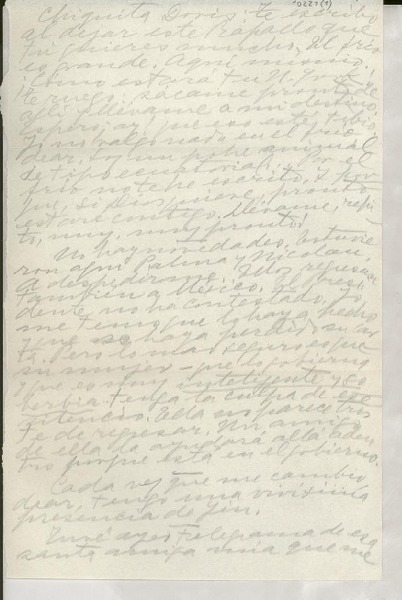 10221(1)
Chiquita Doris: te escribo
al dejar este Rapallo que
tú quieres mucho. El frío
es grande. Aquí mismo.
¡Cómo estará tu N. York!
te ruego: sácame pronto de
allí. Llévame a mi destino.
Espero, ay, que eso esté tibio.
Yo no valgo nada en el frío
dear, soy un pobre animal
de tipo ecuatorial. Por el
frío no te he escrito. Y por
que, si Dios quiere, pronto
estaré contigo. Llévame, repi-
to, muy, muy pronto!
No hay novedades. Estuvie-
ron aquí Palma y Nicolau,
a despedirme. Ella regresa
también a México. El Presi-
dente no ha contestado. Yo
me temo que lo haya hecho
y que se haya perdido su car-
ta. Pero lo más seguro es que
su mujer - que lo gobierna
y que es muy inteligente y so-
berbia - tenga la culpa de ese
silencio. Ella no parece tris-
te de regresar. Un amigo
de ella la ayudará allá aden-
tro porque está en el gobierno.
Cada vez que me cambio
dear, tengo una vivísima
presencia de Yin.
Tuve ayer telegrama de esa
santa amiga mía que me